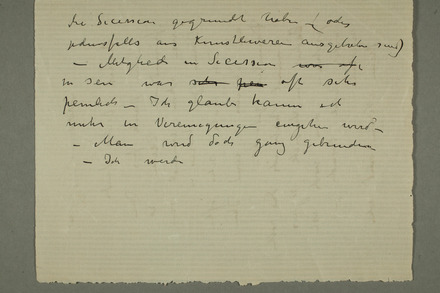 die Secession gegründet haben – (oder
jedenfalls aus Kunstverein ausgetreten sind)
– Mitglied in Secession
zu sein was oft sehr
peinlich – Ich glaube kaum ich
mehr in Vereinigungen eingehen werd –
– Man wird doch ganz gebunden
– Ich werde